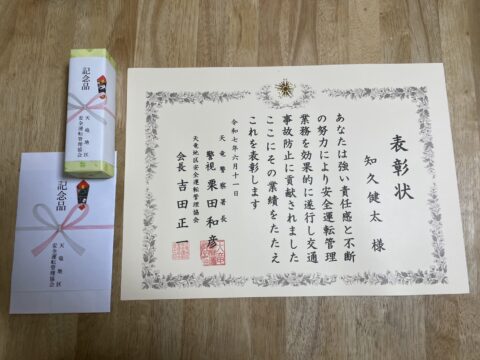 表彰状
知久健太 様
あなたは強い責任感と不断
の努力により安全運転管理
業務を効果的に遂行し交通
事故防止に貢献されました
ここにその業績をたたえ
これを表彰します
令和七年六月十一日
天竜警察署長
警視 栗田和彦
天竜地区安全運転管理協会
会長 吉田正一
記念品
天竜地区
安全運転管理協会
記念品
天竜地区
安全運転管理協会